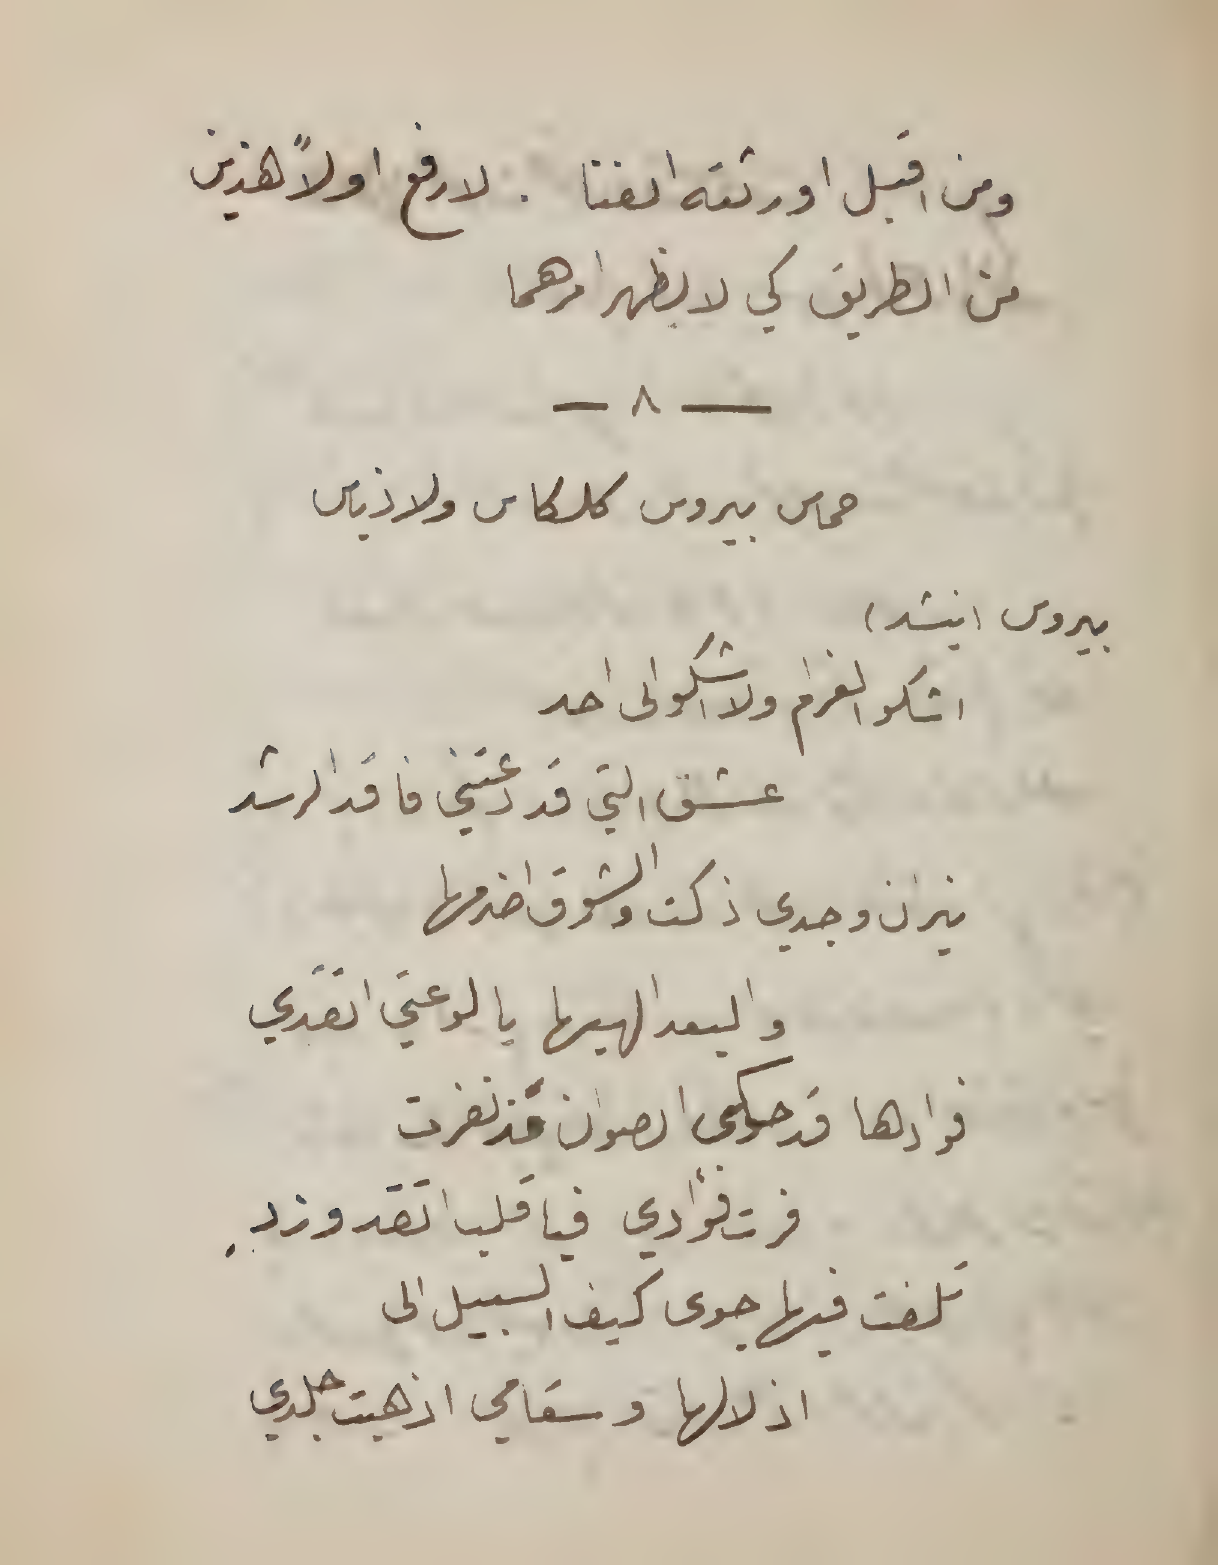 ومن اقبل اورثته الفنا . لارفع اولاً هذين
من الطريق كي لا يظهر امرهما
— ٨ —
حماس بيروس كلكاس ولاذياس
بيروس (ينشد)
اشكو الغرام ولا اشكو الى احد
عشق التي قد دعتني فاقد الرشد
نيران وجدي ذكت والشوق اضرمها
والبعد الهبها يا لوعتي اتقدي
فوادها قد حكى الصوان مذ نفرت
فرت فؤادي فيا قلب اتقد وزد
تلفت فيها جوى كيف السبيل الى
اذلالها وسقامي اذهبت جلدي